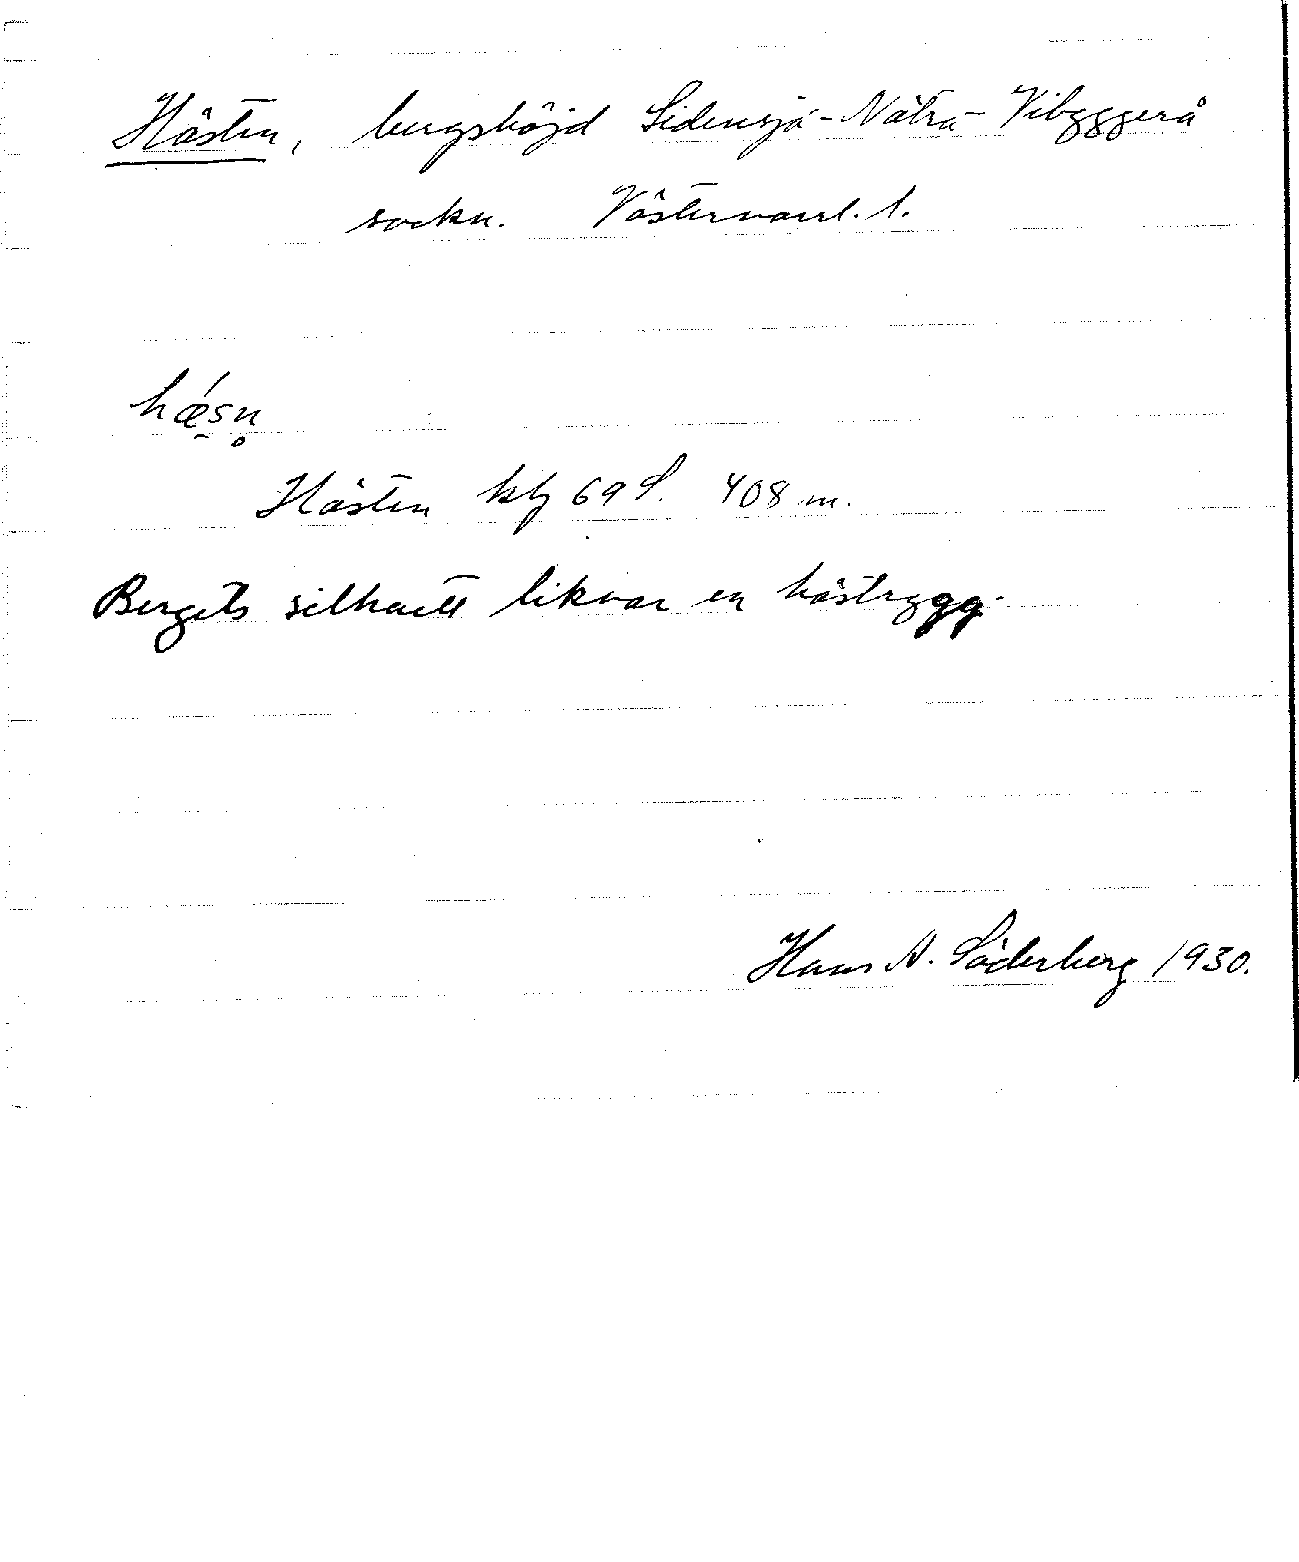 Hästen, bergshöjd Sidensjö - Nätra - Vibyggerå
sockn. Västernorrl. l.
hǽsn̥
Hästen kbl 69 S. 408 m.
Bergets silhuett liknar en hästrygg.
Hans N. Söderberg 1930.